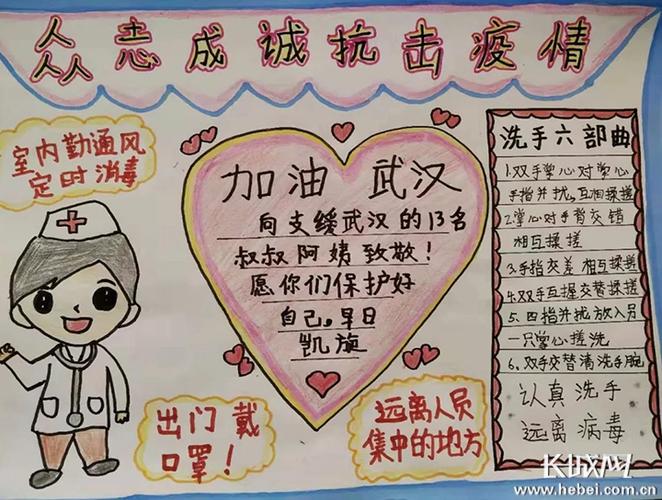 众志成诚抗击疫情
室内勤通风
定时消毒
加油 武汉
向支缓武汉的13名
叔叔阿姨致敬！
愿你们保护好
自己。早日
凯旋
洗手六部曲
1.双手掌心对掌心
手指并扰，互相揉搓
2.掌心对手背交错
相互揉搓
3.手指交差 相互揉搓
4.双手互握交替揉搓
5.四指并扰放入员
一只掌心搓洗
6、双手交替清洗手腕
认真洗手
远离病毒
出门戴
口罩！
远离人员
集中的地方
长城网
www.hebei.com.cn